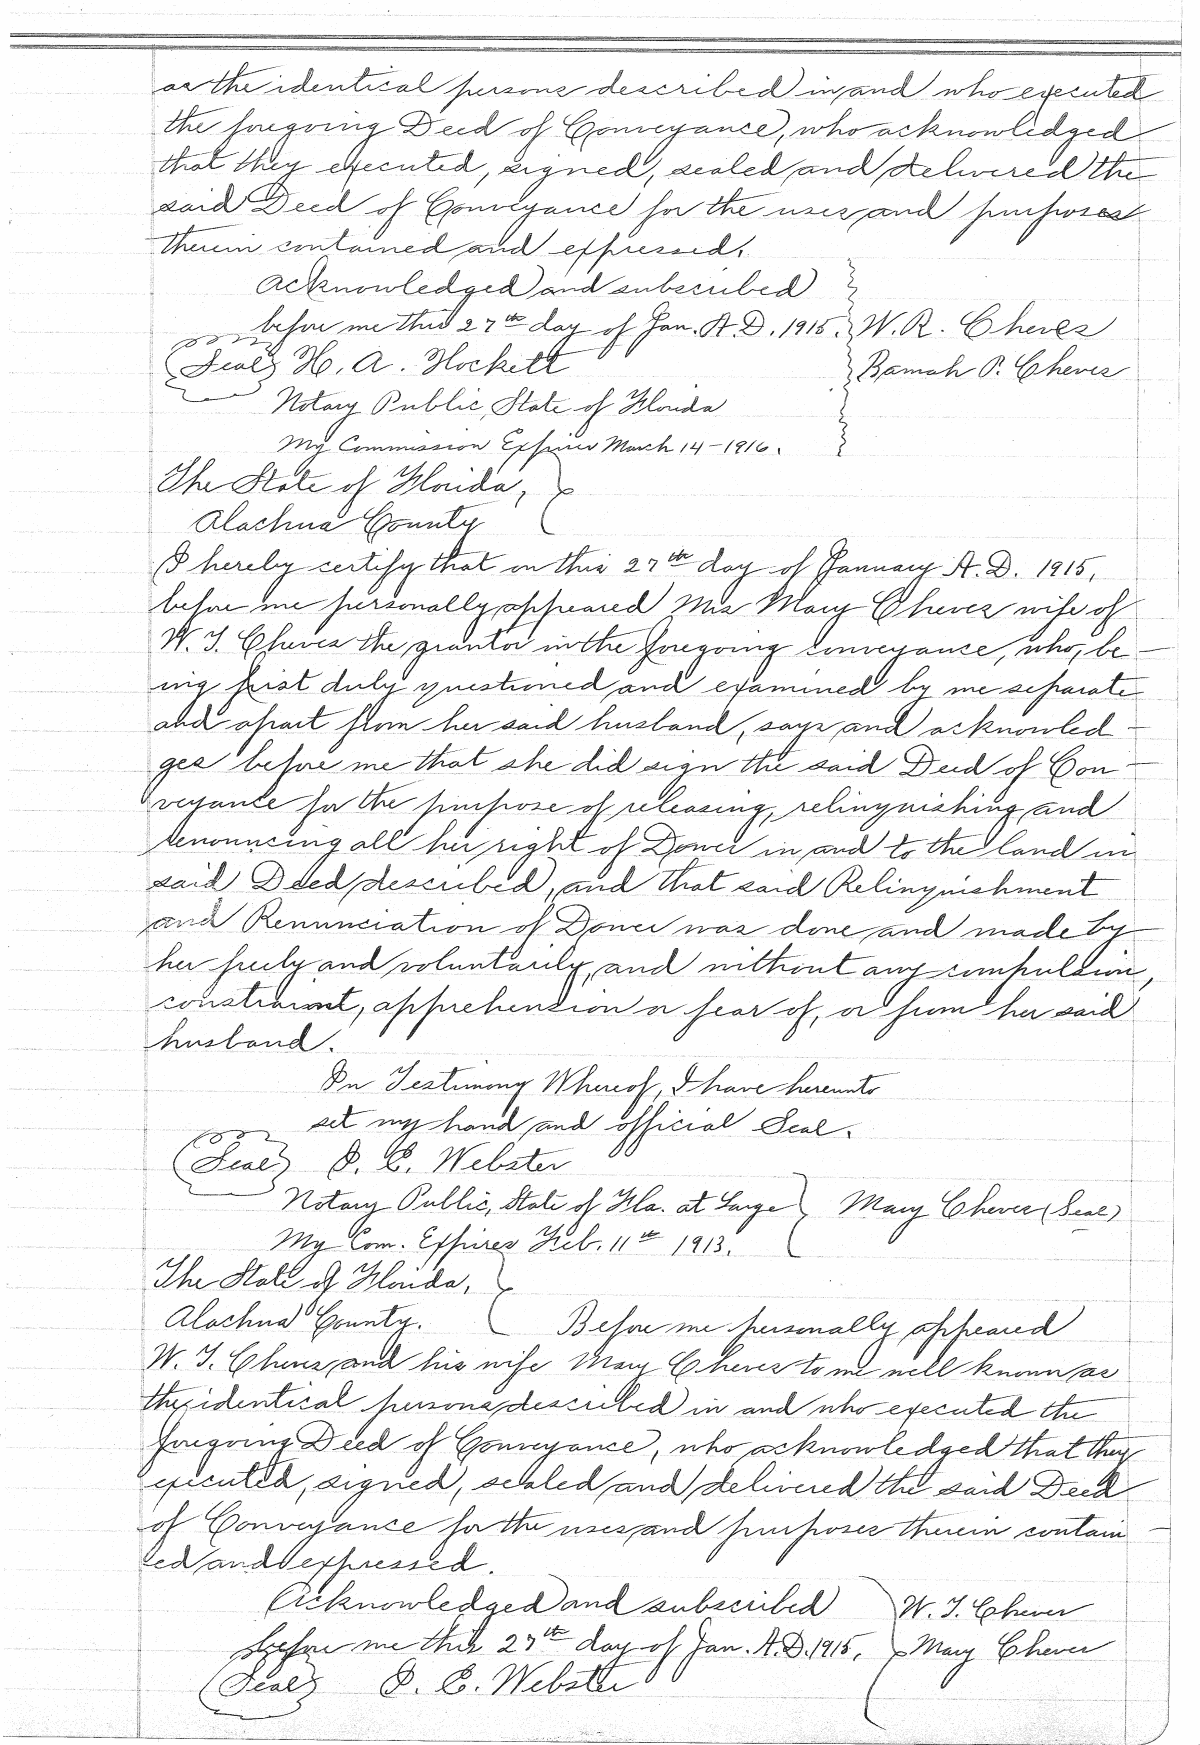 as the identical persons described in and who executed
the foregoing Deed of Conveyance, who acknowledged
that they executed, signed, sealed and delivered the
said Deed of Conveyance for the uses and purposes
therein contained and expressed.
Acknowledged and subscribed
before me this 27th day of Jan. A.D. 1915. W. R. Cheves
(Seal) H. A. Hockett Bamah P. Cheves
Notary Public, State of Florida
My Commission Expires March 14-1916.
The State of Florida,
Alachua County
I hereby certify that on this 27th day of January A.D. 1915,
before me personally appeared Mrs Mary Cheves wife of
W. T. Cheves the grantor in the foregoing conveyance, who, be-
ing first duly questioned and examined by me separate
and apart from her said husband, says and acknowled-
ges before me that she did sign the said Deed of Con-
veyance for the purpose of releasing, relinquishing and
renouncing all her right of Dower in and to the land in
said Deed described, and that said Relinquishment
and Renunciation of Dower was done and made by
her freely and voluntarily, and without any compulsion,
constraint, apprehension or fear of, or from her said
husband.
In Testimony Whereof, I have hereunto
set my hand and official Seal.
(Seal) P. C. Webster
Notary Public, State of Fla. at Large Mary Cheves (Seal)
My Com. Expires Feb. 11th 1913.
The State of Florida,
Alachua County. Before me personally appeared
W. T. Cheves and his wife Mary Cheves to me well known as
the identical persons described in and who executed the
foregoing Deed of Conveyance, who acknowledged that they
executed, signed, sealed and delivered the said Deed
of Conveyance for the uses and purposes therein contain-
ed and expressed.
Acknowledged and subscribed W. T. Cheves
before me this 27th day of Jan. A.D. 1915, Mary Cheves
(Seal) P. C. Webster